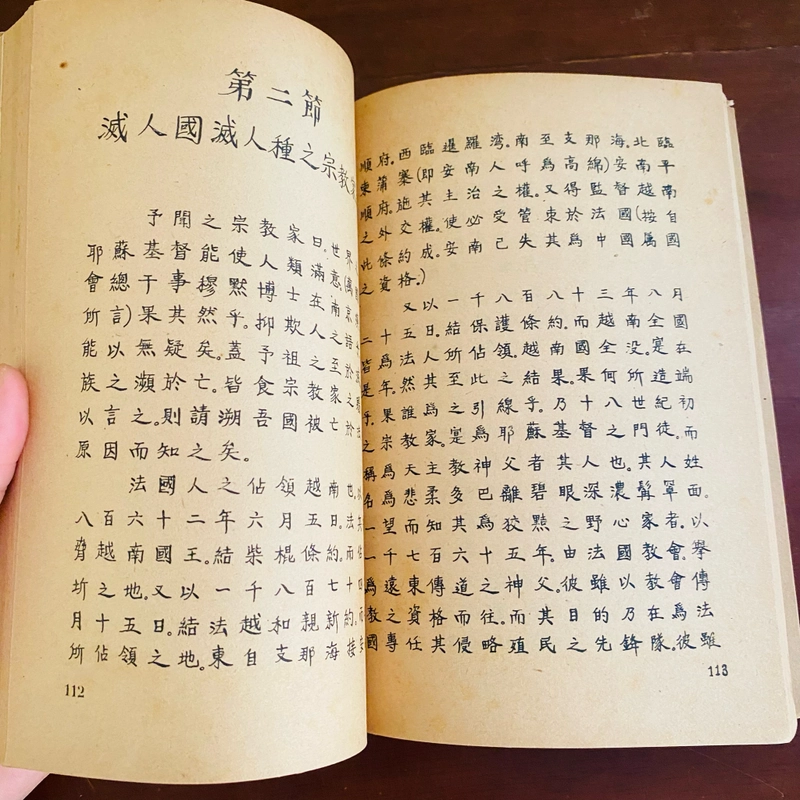 第二節
滅人國滅人種之宗教
予聞之宗教家曰。世界
耶蘇基督能使人類滿意
會總干事穆黙博士在南京
所言)果其然乎。抑欺人之語
能以無疑矣。蓋予祖之至於
族之瀕於亡。皆食宗教家之
以言之。則請溯吾國被亡於
原因而知之矣。
法國人之佔領越南也。
八百六十二年六月五日。法
脅越南國王。結柴棍條約。而
圻之地。又以一千八百七十四
月十五日。結法越和親新約。而
所佔領之地。東自支那海接
112
順府。西臨暹羅湾。南至支那海。北臨
東蒲寨(即安南人呼爲高綿)安南平
順府。施其主治之權。又得監督越南
之外交權。使必受管束於法國(按自
此條約成。安南已失其爲中國属國
之資格。)
又以一千八百八十三年八月
二十五日。結保護條約。而越南全國
皆爲法人所佔領。越南國全没。寔在
是年。然其至此之結果。果何所造端
乎。果誰爲之引線乎。乃十八世紀初
之宗教家。寔爲耶蘇基督之門徒。而
稱爲天主教神父者其人也。其人姓
名爲悲柔多巴離碧眼深濃髯罩面。
一望而知其爲狡黠之野心家者。以
一千七百六十五年。由法國教會。舉
爲遠東傳道之神父。彼雖以教會傳
教之資格而往。而其目的乃在爲法
國專任其侵略殖民之先鋒隊。彼雖
113